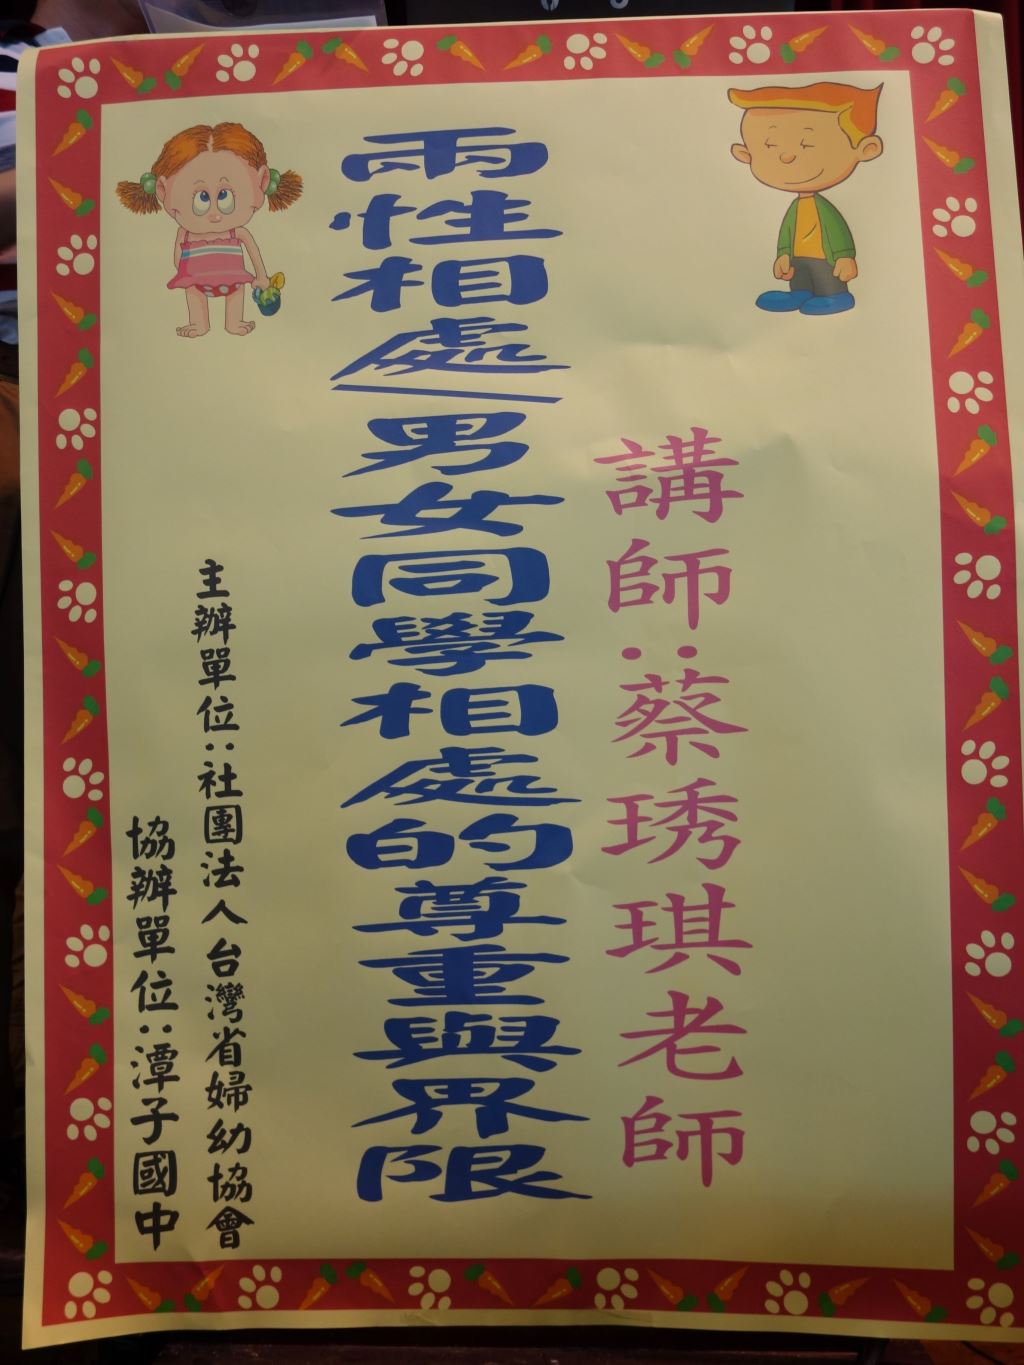 講師：蔡琇琪老師
兩性相處/男女同學相處的尊重與界限
主辦單位：社團法人台灣省婦幼協會
協辦單位：潭子國中